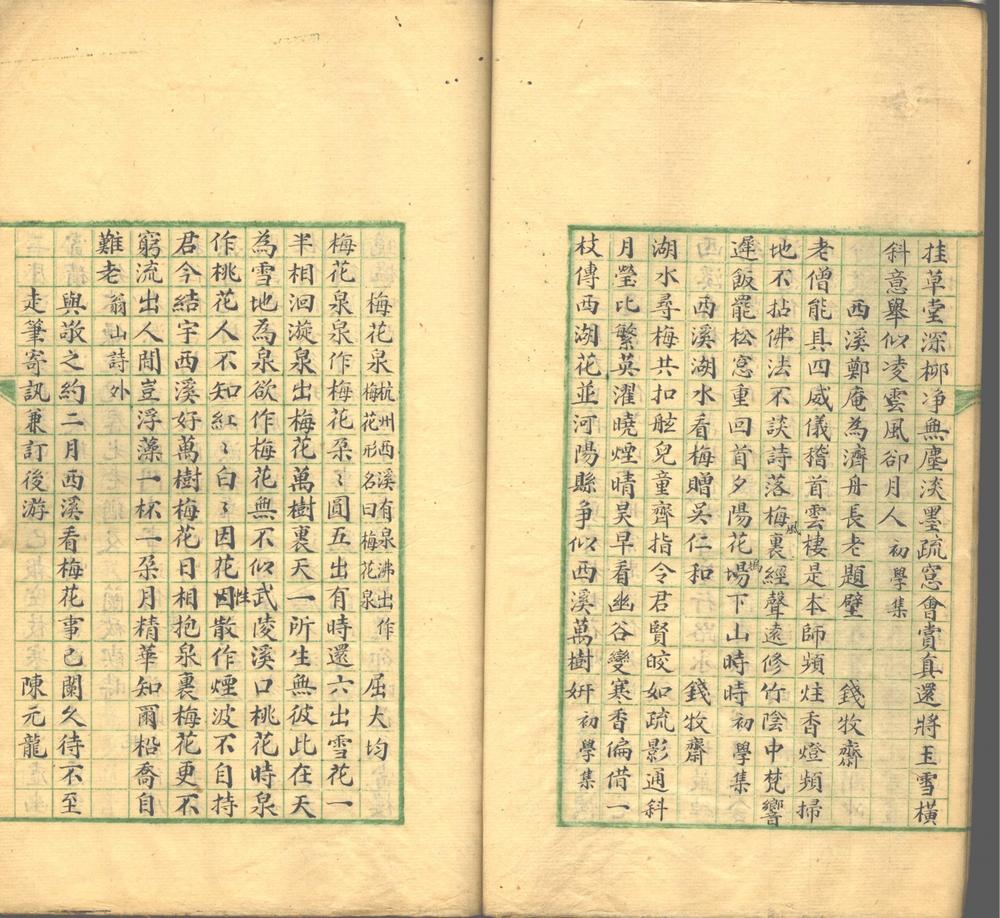 挂草堂深柳凈無塵淡墨疏窓會賞真還將玉雪橫
斜意舉似凌雲風卻月人　初學集
西溪鄭庵為濟舟長老題壁　錢牧齋
老僧能具四威儀稽首雲棲是本師頻炷香燈頻掃
地不拈佛法不談詩落梅風裏經聲遠修竹陰中梵響
遲飯罷松窓重回首夕陽花塢場下山時時　初學集
西溪湖水看梅贈吳仁和　錢牧齋
湖水尋梅共扣舷兒童齊指令君賢皎如疏影通斜
月瑩比繁英濯曉煙晴昊早看幽谷變寒香偏借一
枝傳西湖花並河陽縣爭似西溪萬樹妍　初學集
梅花泉　杭州西溪有泉沸出作梅花形名曰梅花泉　屈大均
梅花泉泉作梅花朶〻圓五出有時還六出雪花一
半相洄漩泉出梅花萬樹裏天一所生無彼此在天
為雪地為泉欲作梅花無不似武陵溪口桃花時泉
作桃花人不知紅〻白〻因花性散作煙波不自持
君今結宇西溪好萬樹梅花日相抱泉裏梅花更不
窮流出人間豈浮藻一杯一朶月精華知爾松喬自
難老　翁山詩外
與敬之約二月西溪看梅花事已闌久待不至
走筆寄訊兼訂後游　陳元龍